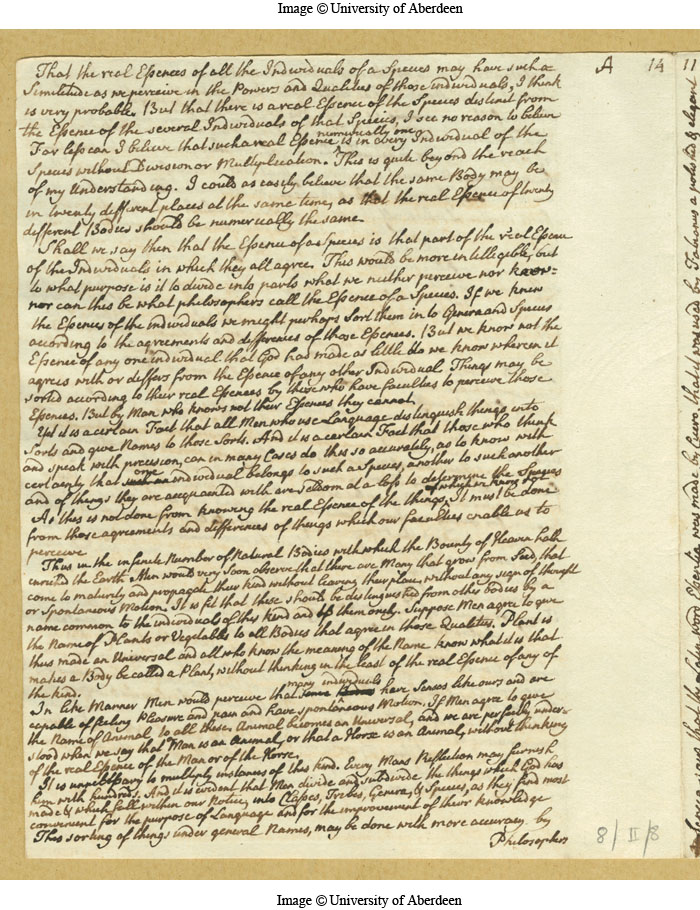 Image © University of Aberdeen
A 14 11
That the real Essences of all the Individuals of a Species may have such a
Similitude as we perceive in the Powers and Qualities of those individuals, I think
is very probable. But that there is a real Essence of the Species distinct from
the Essence of the several Individuals of that Species, I see no reason to believe
Far less can I believe that such a real Essence numerically one is in every Individual of the
Species without Division or Multiplication. This is quite beyond the reach
of my Understanding. I could as easily believe that the same Body may be
in twenty different places at the same time, as that the real Essence of twenty
different Bodies should be numerically the same.
Shall we say then that the Essence of a Species is that part of the real Essence
of the Individuals in which they all agree. This would be more intelligible, but
to what purpose is it to divide into parts what we neither perceive nor know:
nor can this be what philosophers call the Essence of a Species. If we knew
the Essences of the individuals we might perhaps Sort them in to Genera and Species
according to the agreements and differences of those Essences. But we know not the
Essence of any one individual that God had made as little do we know wherein it
agrees with or differs from the Essence of any other Individual Things may be
sorted according to their real Essences by those who have faculties to perceive those
Essences. But by Man who knows not their Essences they cannot.
Yet it is a certain Fact that all Men who use Language distinguish things into
Sorts and give Names to those Sorts. And it is a certain Fact that those who think
and speak with precision, can in many Cases do this so accurately, as to know with
certainty that one individual belongs to such a Species, another to such another
and of things they are acquainted with are seldom at a loss to determine the Species
As this is not done from knowing the real Essence of the things, It must be done
from those agreements and differences of things which our faculties enable us to
perceive
Thus in the infinite Number of Natural Bodies with which the Bounty of Heaven hath
enriched the Earth Men would very soon observe that there are Many that grow from Seed, that
come to maturity and propagate their kind without leaving their place, without any sign of thought
or Spontaneous Motion. It is fit that these should be distinguished from other bodies by a
name common to the individuals of this kind and to them only. Suppose Men agree to give
the Name of Plants or Vegetables to all Bodies that agree in those Qualities. Plant is
thus made an Universal and all who know the meaning of the Name know what it is that
makes a Body be called a Plant, without thinking in the least of the real Essence of any of
the kind.
In like Manner Men would perceive that many individuals have Senses like ours and are
capable of feeling Pleasure and pain and have spontaneous Motion. If Men agree to give
the Name of Animal to all these. Animal becomes an Universal, and we are perfectly under-
stood when we say that Man is an Animal, or that a Horse is an Animal, without thinking
of the real Essence of the Man or of the Horse.
It is unnecessary to multiply instances of this kind. Every Mans Reflection may furnish
him with hundreds. And it is evident that Men divide and subdivide the things which God has
made & which fall within our Notice, into Classes, Tribes, Genera, & Species, as they find most
convenient for the purpose of Language and for the improvement of their knowledge
This sorting of things under general Names, may be done with more accuracy by
Philosophers
8/II/8
Image © University of Aberdeen